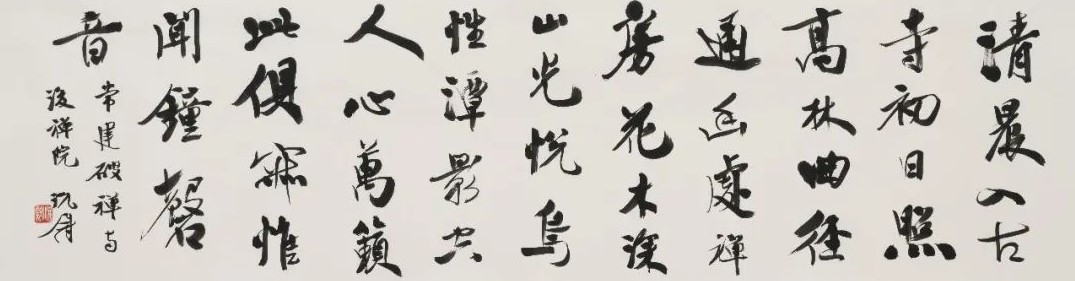 清晨入古
寺初日照
高林曲徑
通幽處禪
房花木深
山光悦鳥
性潭影空
人心萬籟
此俱寂惟
聞鐘磬
音
常建破禪寺
後禪院